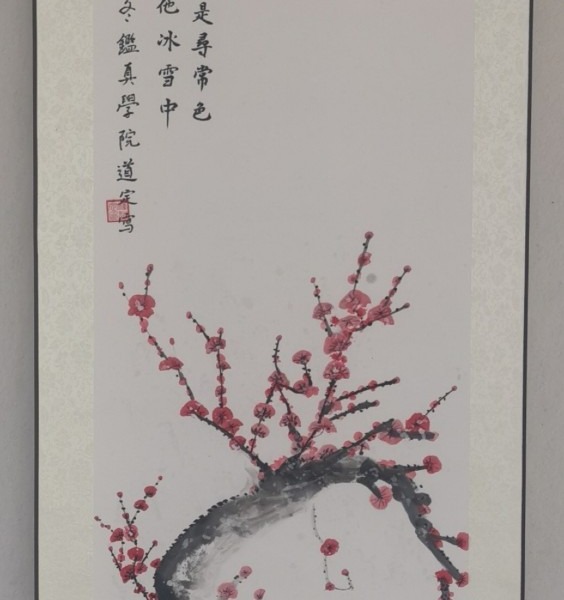 是尋常色
他冰雪中
冬鑑真學院道定寫